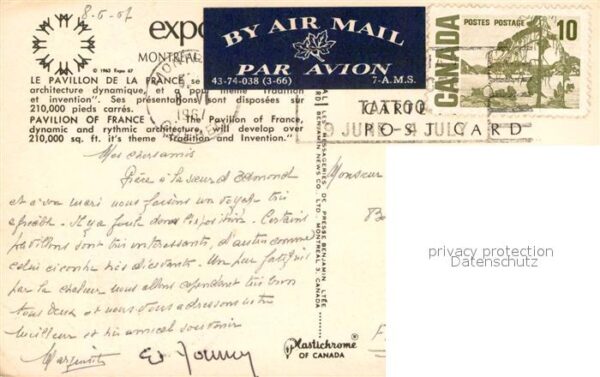 8-6-67
expo
MONTREAL
© 1963 Expo 67
BY AIR MAIL
PAR AVION
43-74-038 (3-66) 7-A.M.S.
POSTES POSTAGE
10
CANADA
LE PAVILLON DE LA FRANCE se
architecture dynamique, et pour thème "Tradition
et invention". Ses présentations sont disposées sur
210,000 pieds carrés.
PAVILION OF FRANCE The Pavilion of France,
dynamic and rythmic architecture, will develop over
210,000 sq. ft. it's theme "Tradition and Invention."
TATTOO
CARTE
29 JUNE - 4 JULY
POST CARD
1967
LES MESSAGERIES DE PRESSE BENJAMIN LTÉE
BENJAMIN NEWS CO. LTD. - MONTREAL 3, CANADA
Mes chers amis
Grâce à la sœur d'Edmond
et à son mari nous faisons un voyage très
agréable. Il y a foule dans l'exposition. Certains
pavillons sont très intéressants, d'autres comme
celui ci contre très décevants. Un peu fatigués
par la chaleur nous allons cependant très bien
tous deux et nous vous adressons notre
meilleur et très amical souvenir
Marguerite
Monsieur
Plastichrome
OF CANADA
privacy protection
Datenschutz